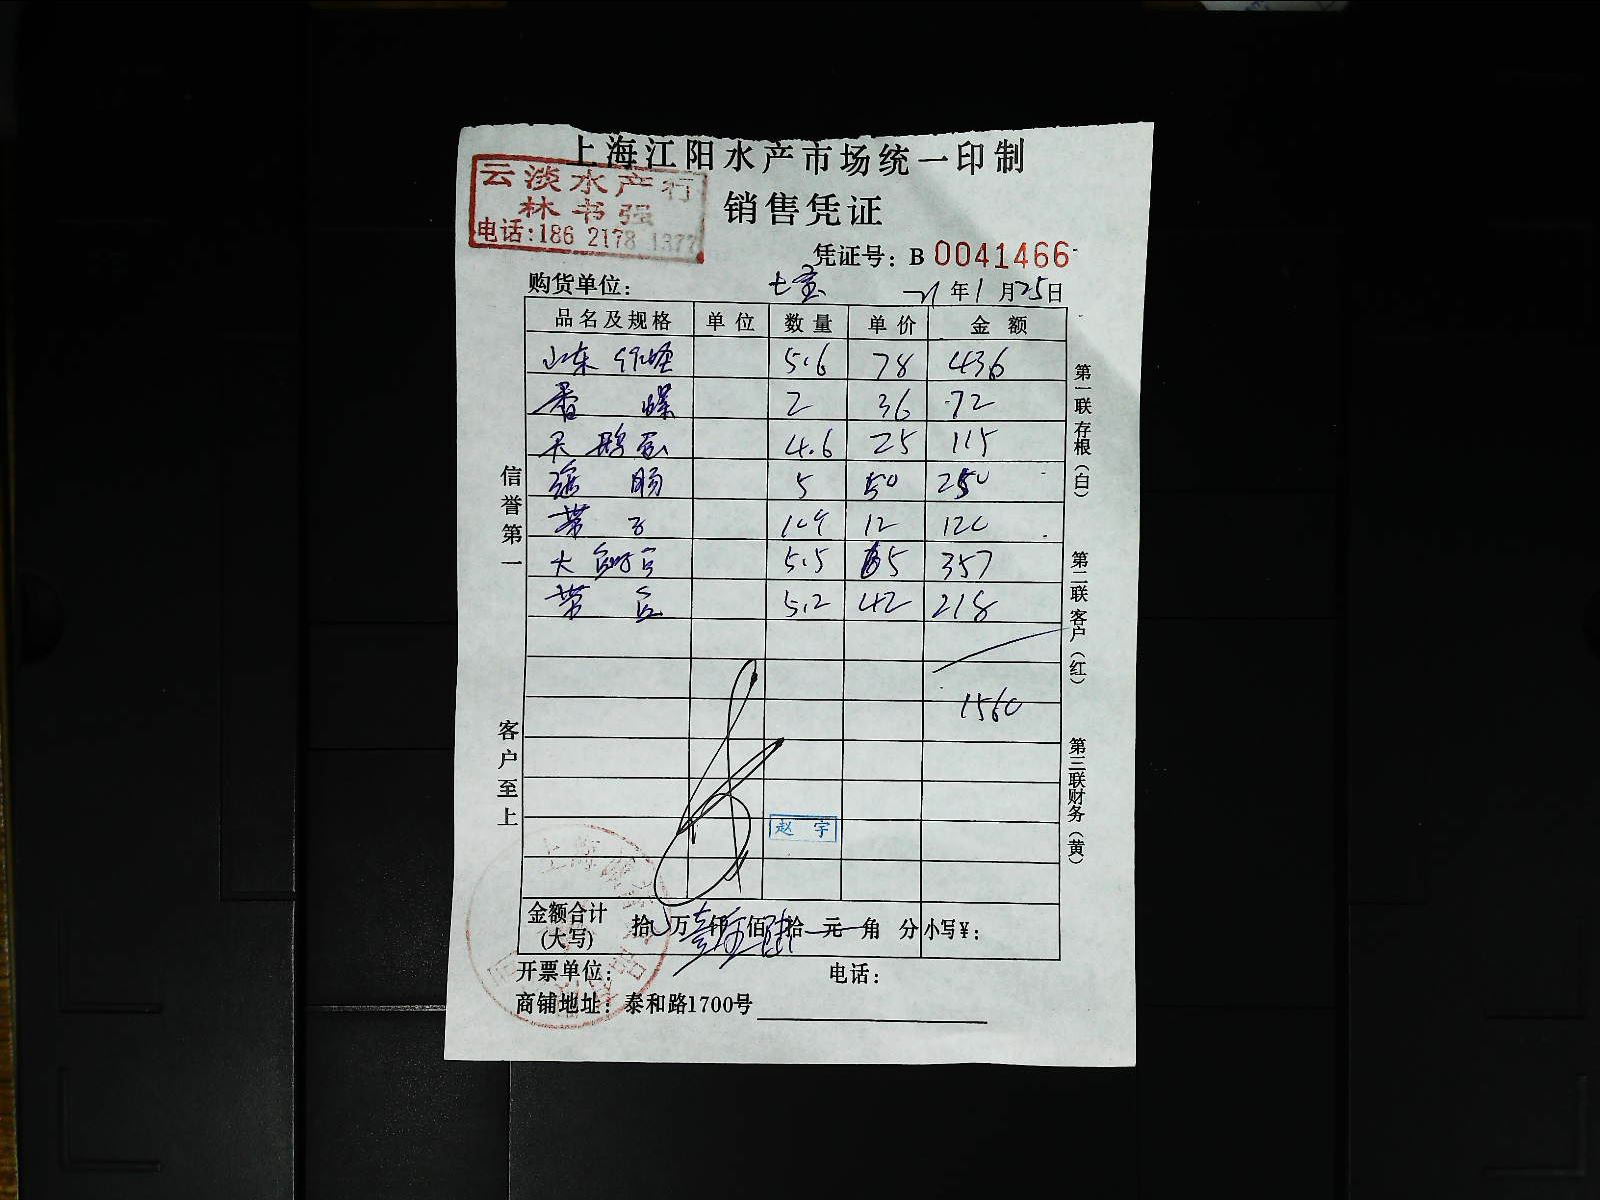 上海江阳水产市场统一印制
云淡水产行
林书强
电话:186 2178 1377
销售凭证
凭证号: B 0041466
购货单位: 七宝 21年1月25日
品名及规格 单位 数量 单价 金额
山东 5.6 78 436
香螺 2 36 72
天鹅蛋 4.6 25 115
5 50 250
带子 12 120
大 5.5 65 357
带 5.2 42 218
1560
赵宇
金额合计(大写) 拾 万 壹仟 伍佰 陆拾 元 角 分 小写¥:
开票单位: 电话:
商铺地址: 泰和路1700号
信誉第一
客户至上
第一联存根(白)
第二联客户(红)
第三联财务(黄)